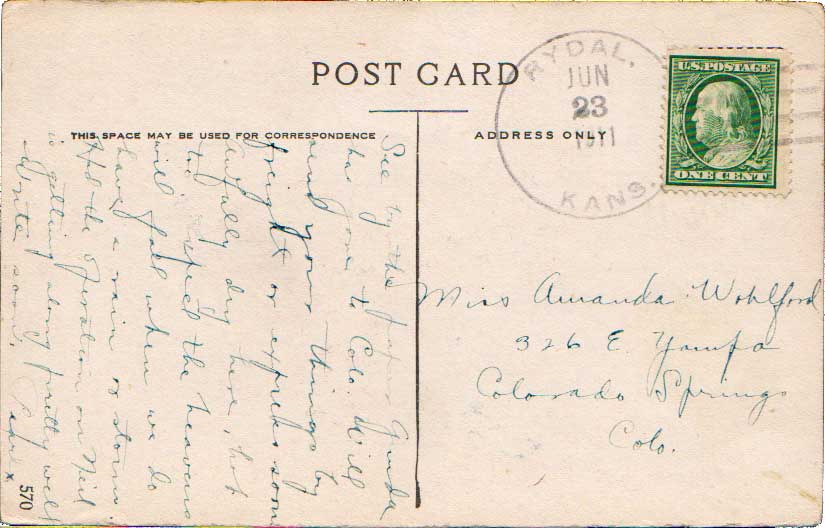 POST CARD
THIS SPACE MAY BE USED FOR CORRESPONDENCE
ADDRESS ONLY
RYDAL,
JUN
23
1911
KANS.
U.S. POSTAGE
ONE CENT
See by the papers Guida
has gone to Colo. Will
send your things by
freight or express soon
Awfully dry here, hot
too. Expect the heavens
will fall when we do
have a rain or storm.
Had the operation on Neil
is getting along pretty well
Write soon, Pearl x
Miss Amanda Wohlford
326 E. Yampa
Colorado Springs
Colo.
570